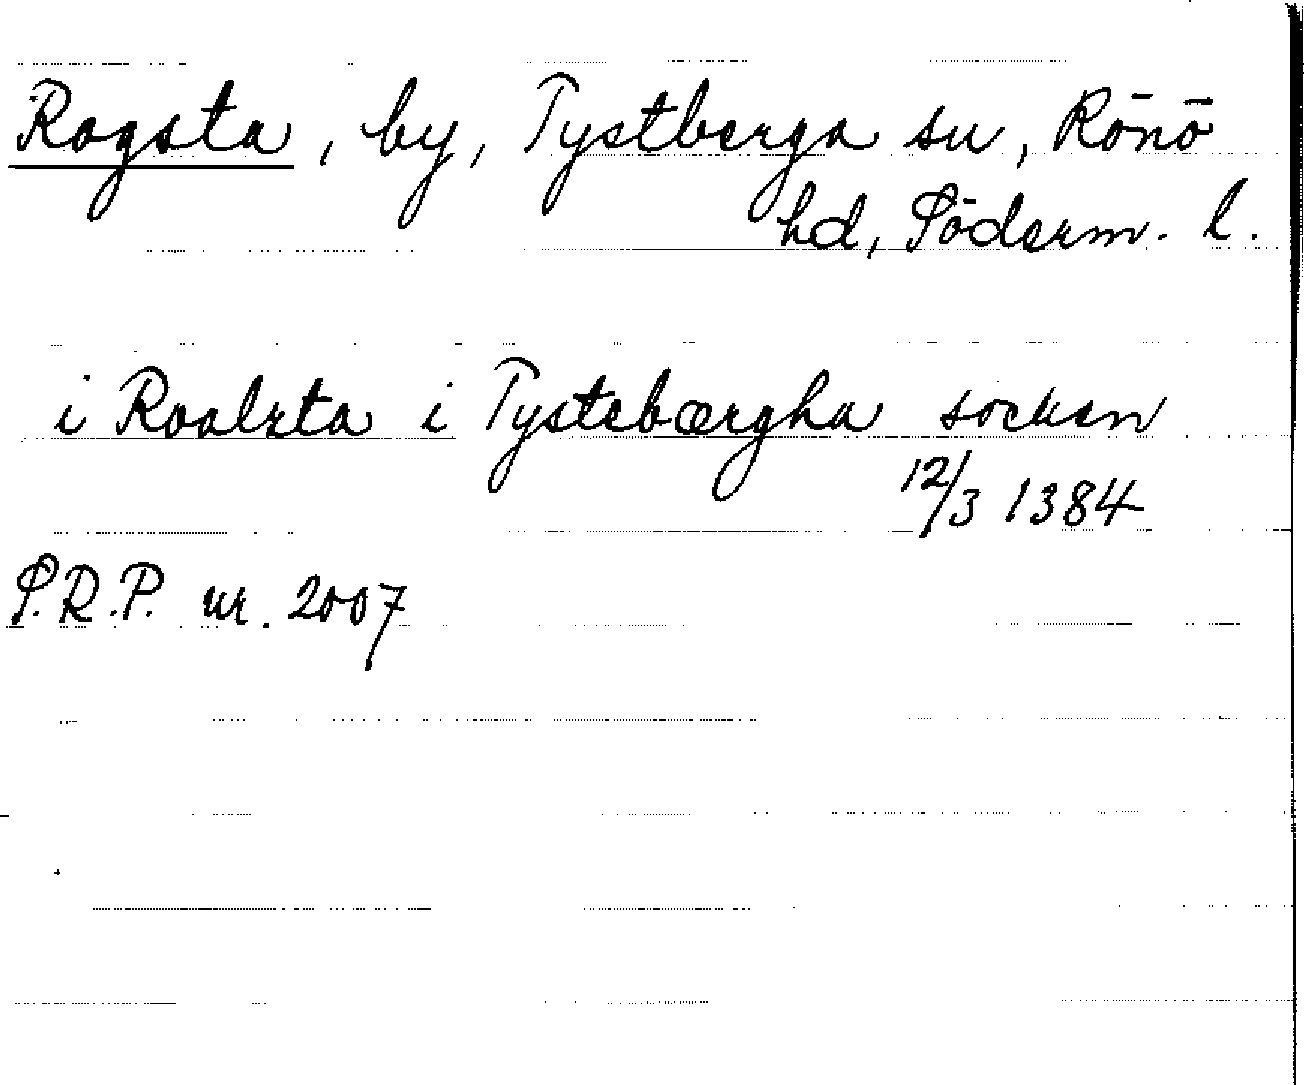 Rogsta, by, Tystberga sn, Rönö
hd, Söderm. l.
i Roalzta i Tystebærgha socken
12/3 1384
S.R.P. nr. 2007